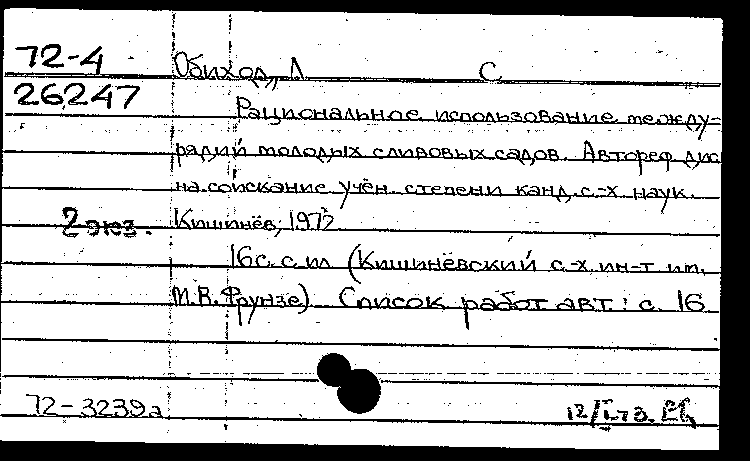 72-4 Обиход, Л С
26247 Рациональное использование между-
рядий молодых сливовых садов. Автореф дис
на соискание учён. степени канд. с.-х наук.
2 экз. Кишинёв, 197
16 с. с ил (Кишинёвский с-х ин-т им.
М.В. Фрунзе) Список работ авт.: с. 16
72-3239а 12/I-73.